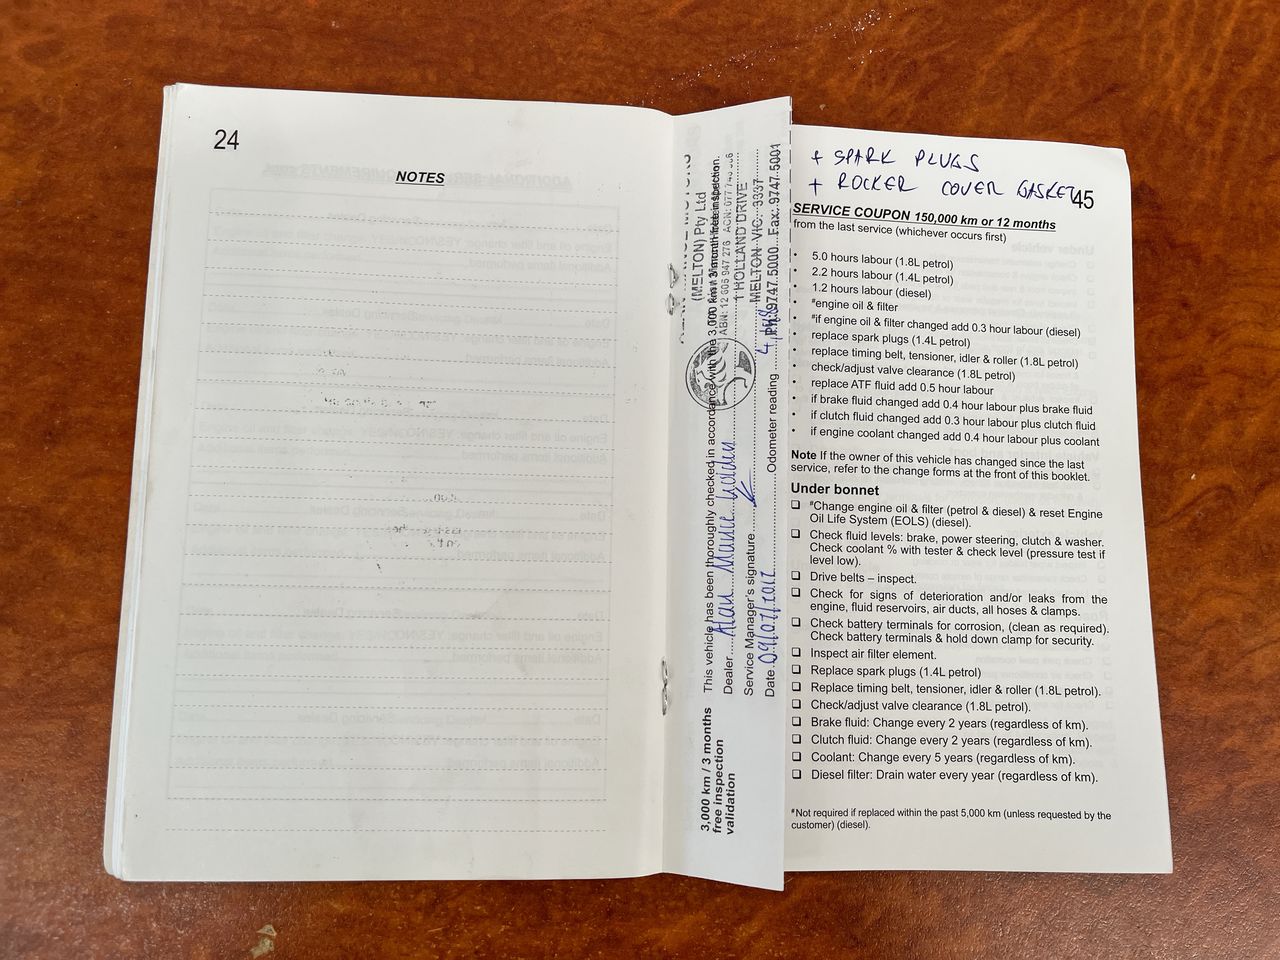 24
NOTES
3,000 km / 3 months
free inspection
validation
This vehicle has been thoroughly checked in accordance with the 3,000 km / 3 month free inspection.
Dealer Alan Mance Holden
Service Manager's signature
Date 09/07/2012 Odometer reading
(MELTON) Pty Ltd
1 HOLLAND DRIVE
MELTON VIC. 3337
Ph: 9747 5000 Fax: 9747 5001
+ SPARK PLUGS
+ ROCKER COVER GASKET
45
SERVICE COUPON 150,000 km or 12 months
from the last service (whichever occurs first)
• 5.0 hours labour (1.8L petrol)
• 2.2 hours labour (1.4L petrol)
• 1.2 hours labour (diesel)
• #engine oil & filter
• #if engine oil & filter changed add 0.3 hour labour (diesel)
• replace spark plugs (1.4L petrol)
• replace timing belt, tensioner, idler & roller (1.8L petrol)
• check/adjust valve clearance (1.8L petrol)
• replace ATF fluid add 0.5 hour labour
• if brake fluid changed add 0.4 hour labour plus brake fluid
• if clutch fluid changed add 0.3 hour labour plus clutch fluid
• if engine coolant changed add 0.4 hour labour plus coolant
Note If the owner of this vehicle has changed since the last
service, refer to the change forms at the front of this booklet.
Under bonnet
❏ #Change engine oil & filter (petrol & diesel) & reset Engine
Oil Life System (EOLS) (diesel).
❏ Check fluid levels: brake, power steering, clutch & washer.
Check coolant % with tester & check level (pressure test if
level low).
❏ Drive belts – inspect.
❏ Check for signs of deterioration and/or leaks from the
engine, fluid reservoirs, air ducts, all hoses & clamps.
❏ Check battery terminals for corrosion, (clean as required).
Check battery terminals & hold down clamp for security.
❏ Inspect air filter element.
❏ Replace spark plugs (1.4L petrol)
❏ Replace timing belt, tensioner, idler & roller (1.8L petrol).
❏ Check/adjust valve clearance (1.8L petrol).
❏ Brake fluid: Change every 2 years (regardless of km).
❏ Clutch fluid: Change every 2 years (regardless of km).
❏ Coolant: Change every 5 years (regardless of km).
❏ Diesel filter: Drain water every year (regardless of km).
#Not required if replaced within the past 5,000 km (unless requested by the
customer) (diesel).